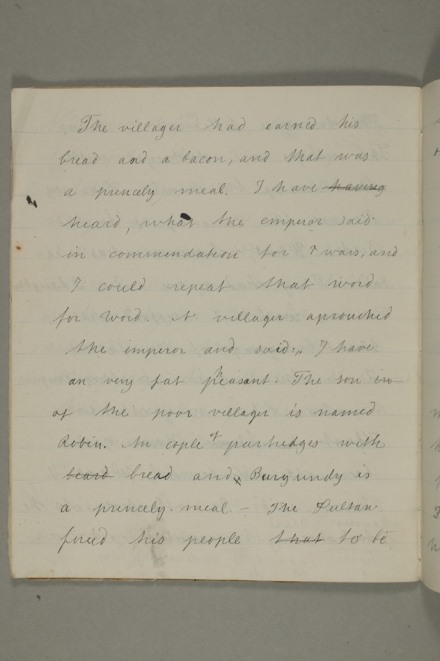 The villager had earned his
bread and a bacon, and that was
a princely meal. I have having
heard, what the emperor said
in commendation for wars, and
I could repeat that word
for word. A villager aprouched
the emperor and said: I have
an very fat pheasant. The son in
of the poor villager is named
Robin. An cople of partridges with
beard bread and Burgundy is
a princely meal - The Sultan
forced his people that to be